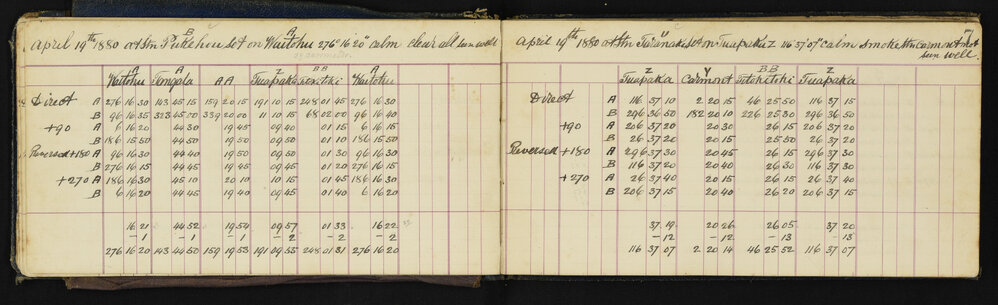 April 19th 1880 at Stn Pukehou B set on Waitohu A 276° 16' 20" calm clear all seen well
Waitohu A Tongata A AA Tuapaka Z BB Waitohu A
Direct A 276 16 30 143 45 15 159 20 15 191 10 15 248 01 45 276 16 30
B 96 16 35 323 45 00 339 20 00 11 10 15 68 02 00 96 16 40
+90 A 6 16 20 44 30 19 45 09 40 01 15 6 16 15
B 186 15 50 44 50 19 50 09 50 01 10 186 15 50
Reversed +180 A 96 16 30 44 40 19 50 09 50 01 30 96 16 30
B 276 16 15 44 45 19 45 09 45 01 20 276 16 15
+270 A 186 16 30 45 10 20 10 10 15 01 45 186 16 30
B 6 16 20 44 45 19 40 09 45 01 40 6 16 20
16 21 44 52 19 54 09 57 01 33 16 22
-1 -1 -1 -2 -2 -2
276 16 20 143 44 50 159 19 53 191 09 55 248 01 31 276 16 20
71
April 19th 1880 at Stn Taranaki V set on Tuapaka Z 116° 37' 07" calm smoke Stn Carmont not
seen well.
Tuapaka Z Carmont V BB Tuapaka Z
Direct A 116 37 10 2 20 15 46 25 50 116 37 15
B 296 36 50 182 20 10 226 25 30 296 36 50
+90 A 206 37 20 20 30 26 15 206 37 20
B 26 37 20 20 15 25 50 26 37 20
Reversed +180 A 296 37 30 20 45 26 15 296 37 30
B 116 37 20 20 40 26 30 116 37 30
+270 A 26 37 40 20 15 26 15 26 37 40
B 206 37 15 20 40 26 20 206 37 15
37 19 20 26 26 05 37 20
-12 -12 -13 -13
116 37 07 2 20 14 46 25 52 116 37 07